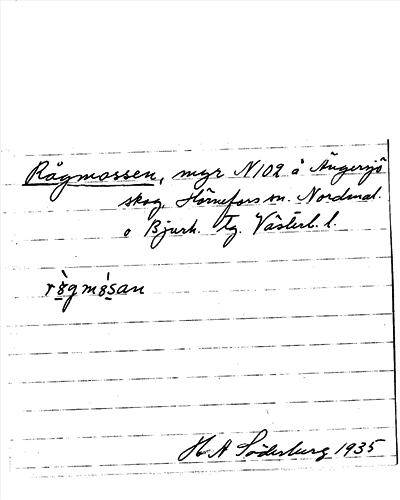 Rågmossen, myr N102 å Ängersjö
skog Hörnefors sn. Nordmal.
o Bjurh. tg. Västerb. l.
rògmósan
H A Söderberg 1935